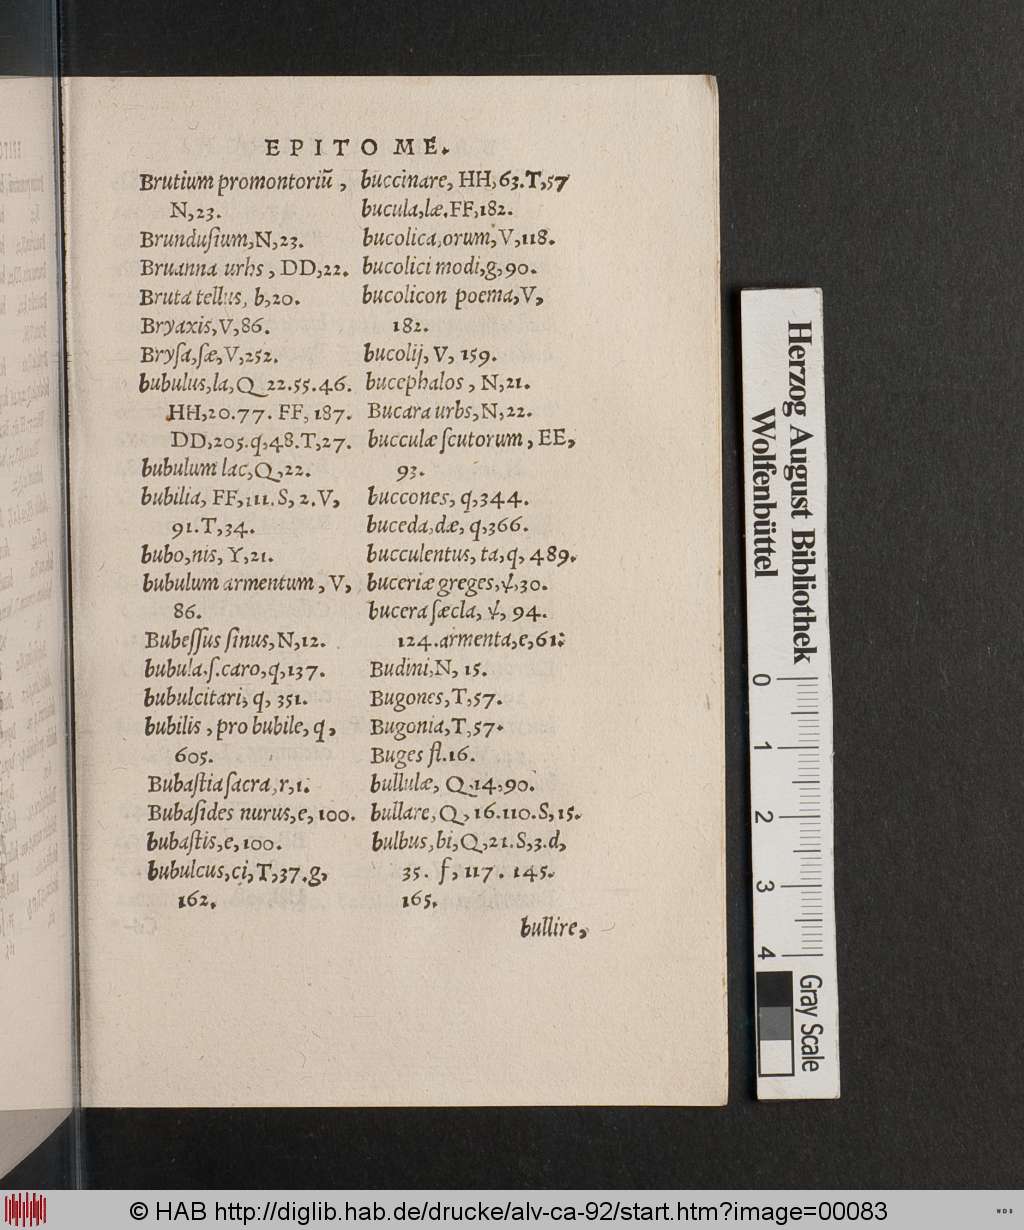 EPITOME.
Brutium promontoriũ,
N,23.
Brundusium,N,23.
Bruanna urbs, DD,22.
Bruta tellus, b,20.
Bryaxis,V,86.
Brysa,sæ,V,252.
bubulus,la,Q 22.55.46.
HH,20.77. FF, 187.
DD,205.q,48.T,27.
bubulum lac,Q,22.
bubilia, FF,111.S, 2.V,
91.T,34.
bubo,nis, Y,21.
bubulum armentum, V,
86.
Bubessus sinus,N,12.
bubula.s.caro,q,137.
bubulcitari, q, 351.
bubilis, pro bubile, q,
605.
Bubastia sacra,r,1.
Bubasides nurus,e, 100.
bubastis,e,100.
bubulcus,ci,T,37.g,
162.
buccinare, HH,63.T,57
bucula,læ.FF,182.
bucolica,orum,V,118.
bucolici modi,g,90.
bucolicon poema,V,
182.
bucolij, V, 159.
bucephalos, N,21.
Bucara urbs,N,22.
bucculæ scutorum, EE,
93.
buccones, q,344.
buceda,dæ, q,366.
bucculentus, ta,q, 489.
buceriæ greges,ψ,30.
bucera sæcla, ψ, 94.
124.armenta,e,61:
Budini,N, 15.
Bugones,T,57.
Bugonia,T,57.
Buges fl.16.
bullulæ, Q,14,90.
bullare,Q, 16.110.S,15.
bulbus,bi,Q,21.S,3.d,
35. f, 117. 145.
165.
bullire,
Herzog August Bibliothek
Wolfenbüttel
0 1 2 3 4
Gray Scale
© HAB http://diglib.hab.de/drucke/alv-ca-92/start.htm?image=00083